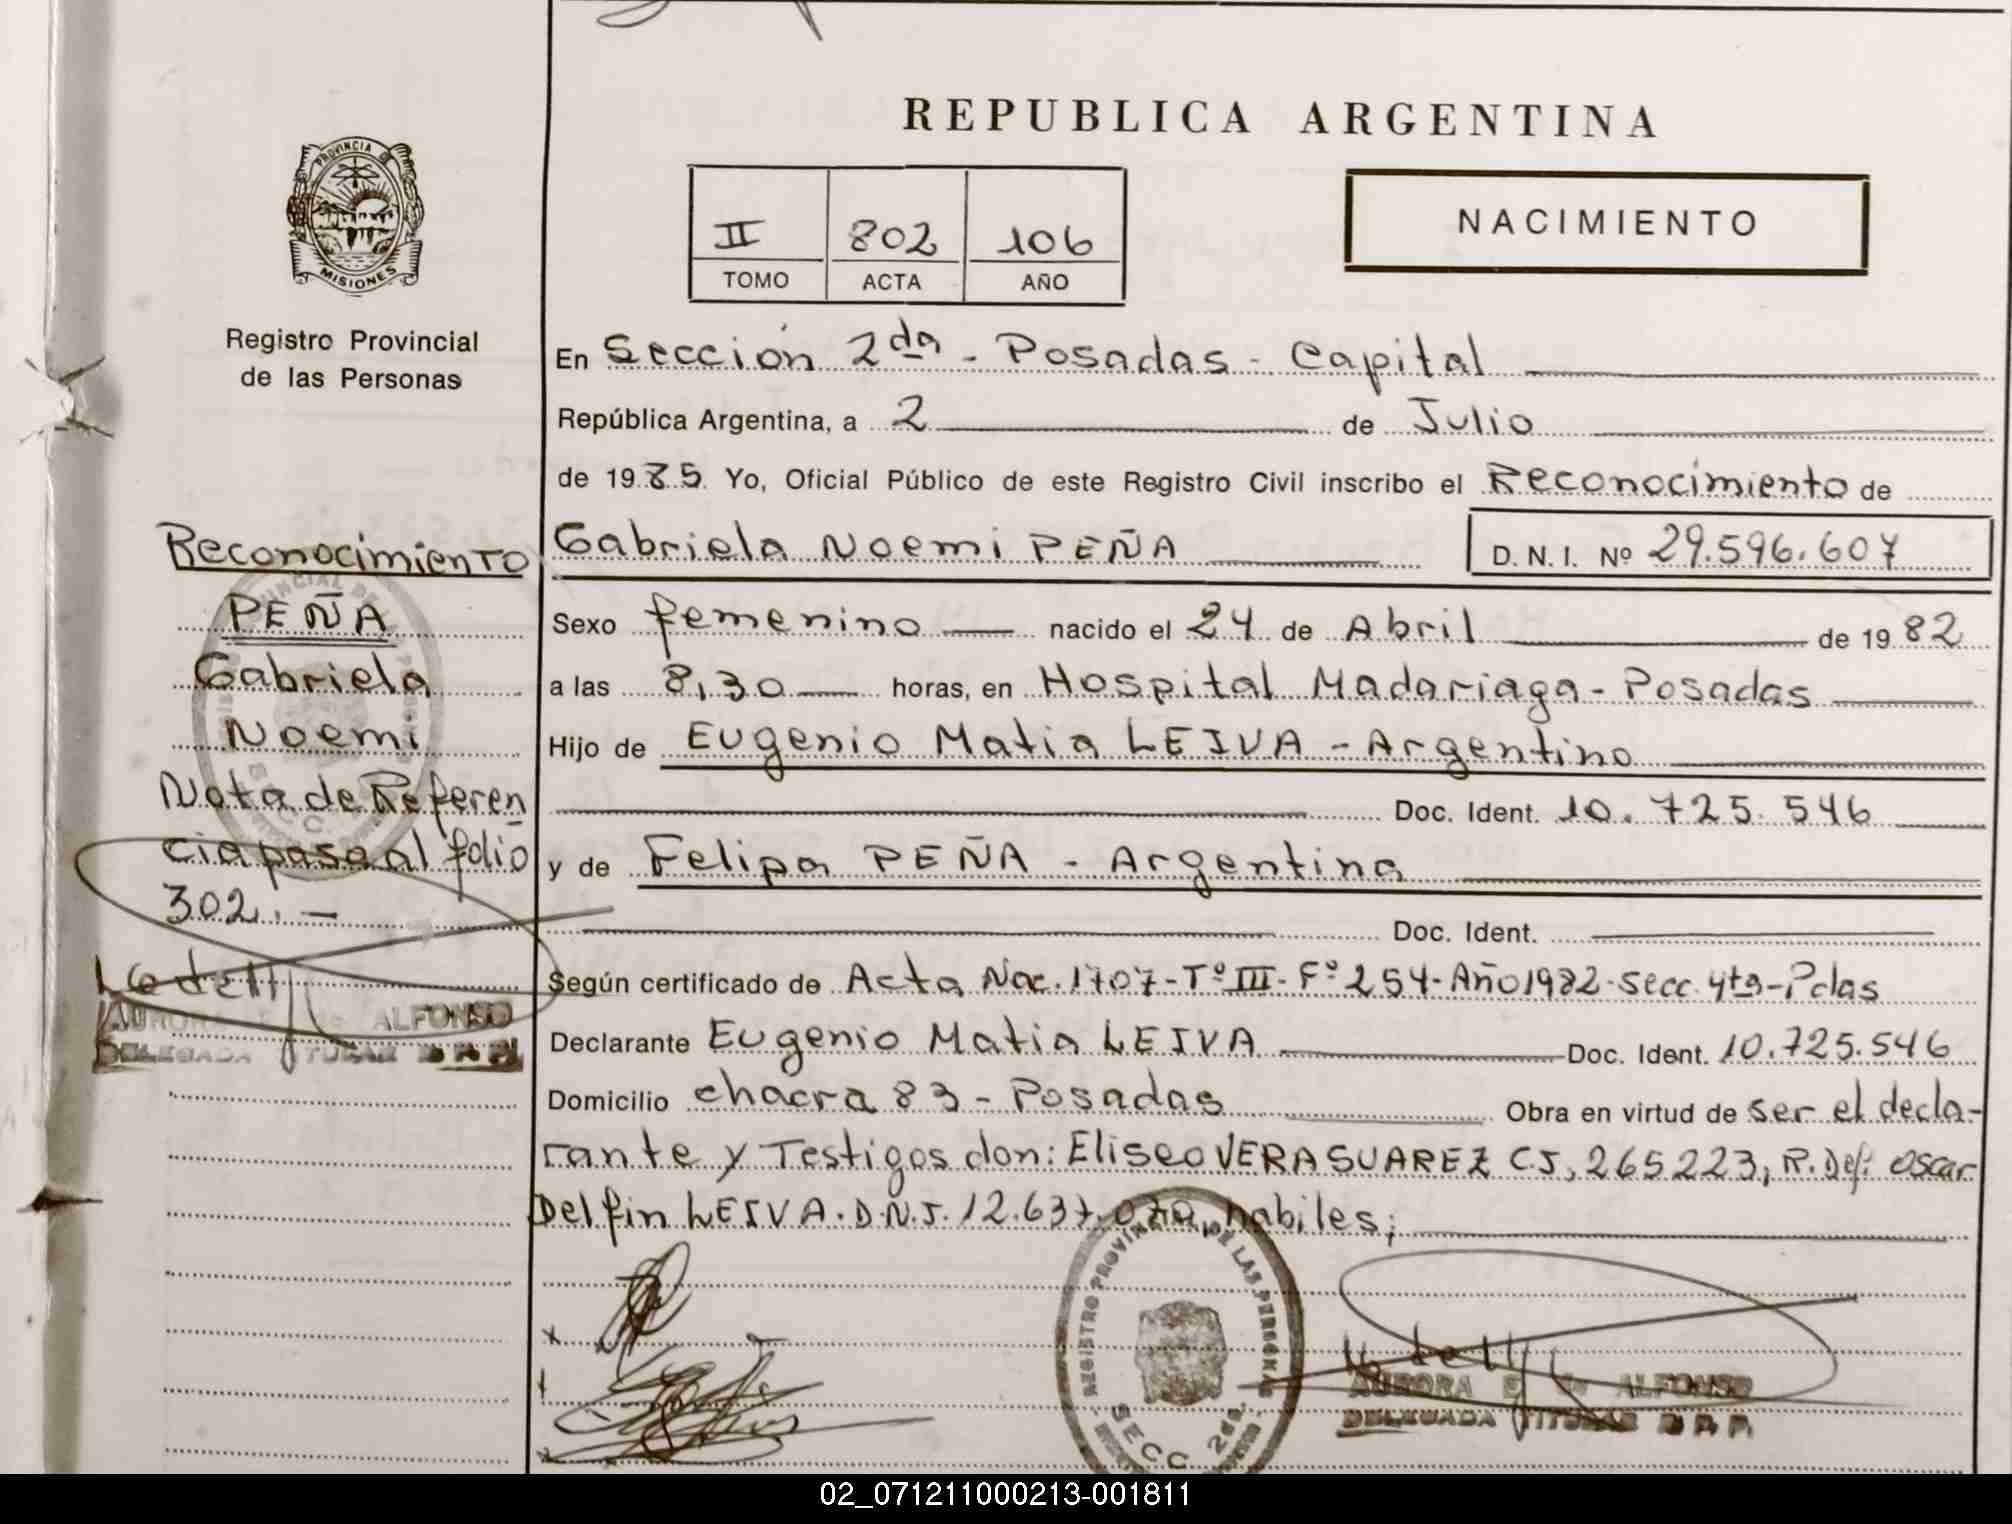 REPUBLICA ARGENTINA
PROVINCIA DE
MISIONES
Registro Provincial
de las Personas
II 802 106
TOMO ACTA AÑO
NACIMIENTO
En Sección 2da - Posadas - Capital
República Argentina, a 2 de Julio
de 1985 Yo, Oficial Público de este Registro Civil inscribo el Reconocimiento de
Gabriela Noemi PEÑA D. N. I. Nº 29.596.607
Sexo femenino nacido el 24 de Abril de 1982
a las 8,30 horas, en Hospital Madariaga - Posadas
Hijo de Eugenio Matia LEIVA - Argentino
Doc. Ident. 10.725.546
y de Felipa PEÑA - Argentina
Doc. Ident.
Según certificado de Acta Nac. 1707 - Tº III - Fº 254 - Año 1982 - Secc. 4ta - Pdas
Declarante Eugenio Matia LEIVA Doc. Ident. 10.725.546
Domicilio chacra 83 - Posadas Obra en virtud de ser el decla-
rante y Testigos don: Eliseo VERA SUAREZ C.I, 265.223, R. Def: Oscar
Delfin LEIVA. D.N.I. 12.637. habiles;
Reconocimiento
PEÑA
Gabriela
Noemi
Nota de Referen
cia pasa al folio
302. -
AURORA E. de ALFONSO
DELEGADA TITULAR R. P. P.
REGISTRO PROVINCIAL DE LAS PERSONAS
SECC 2da.
AURORA E. de ALFONSO
DELEGADA TITULAR R. P. P.
02_071211000213-001811